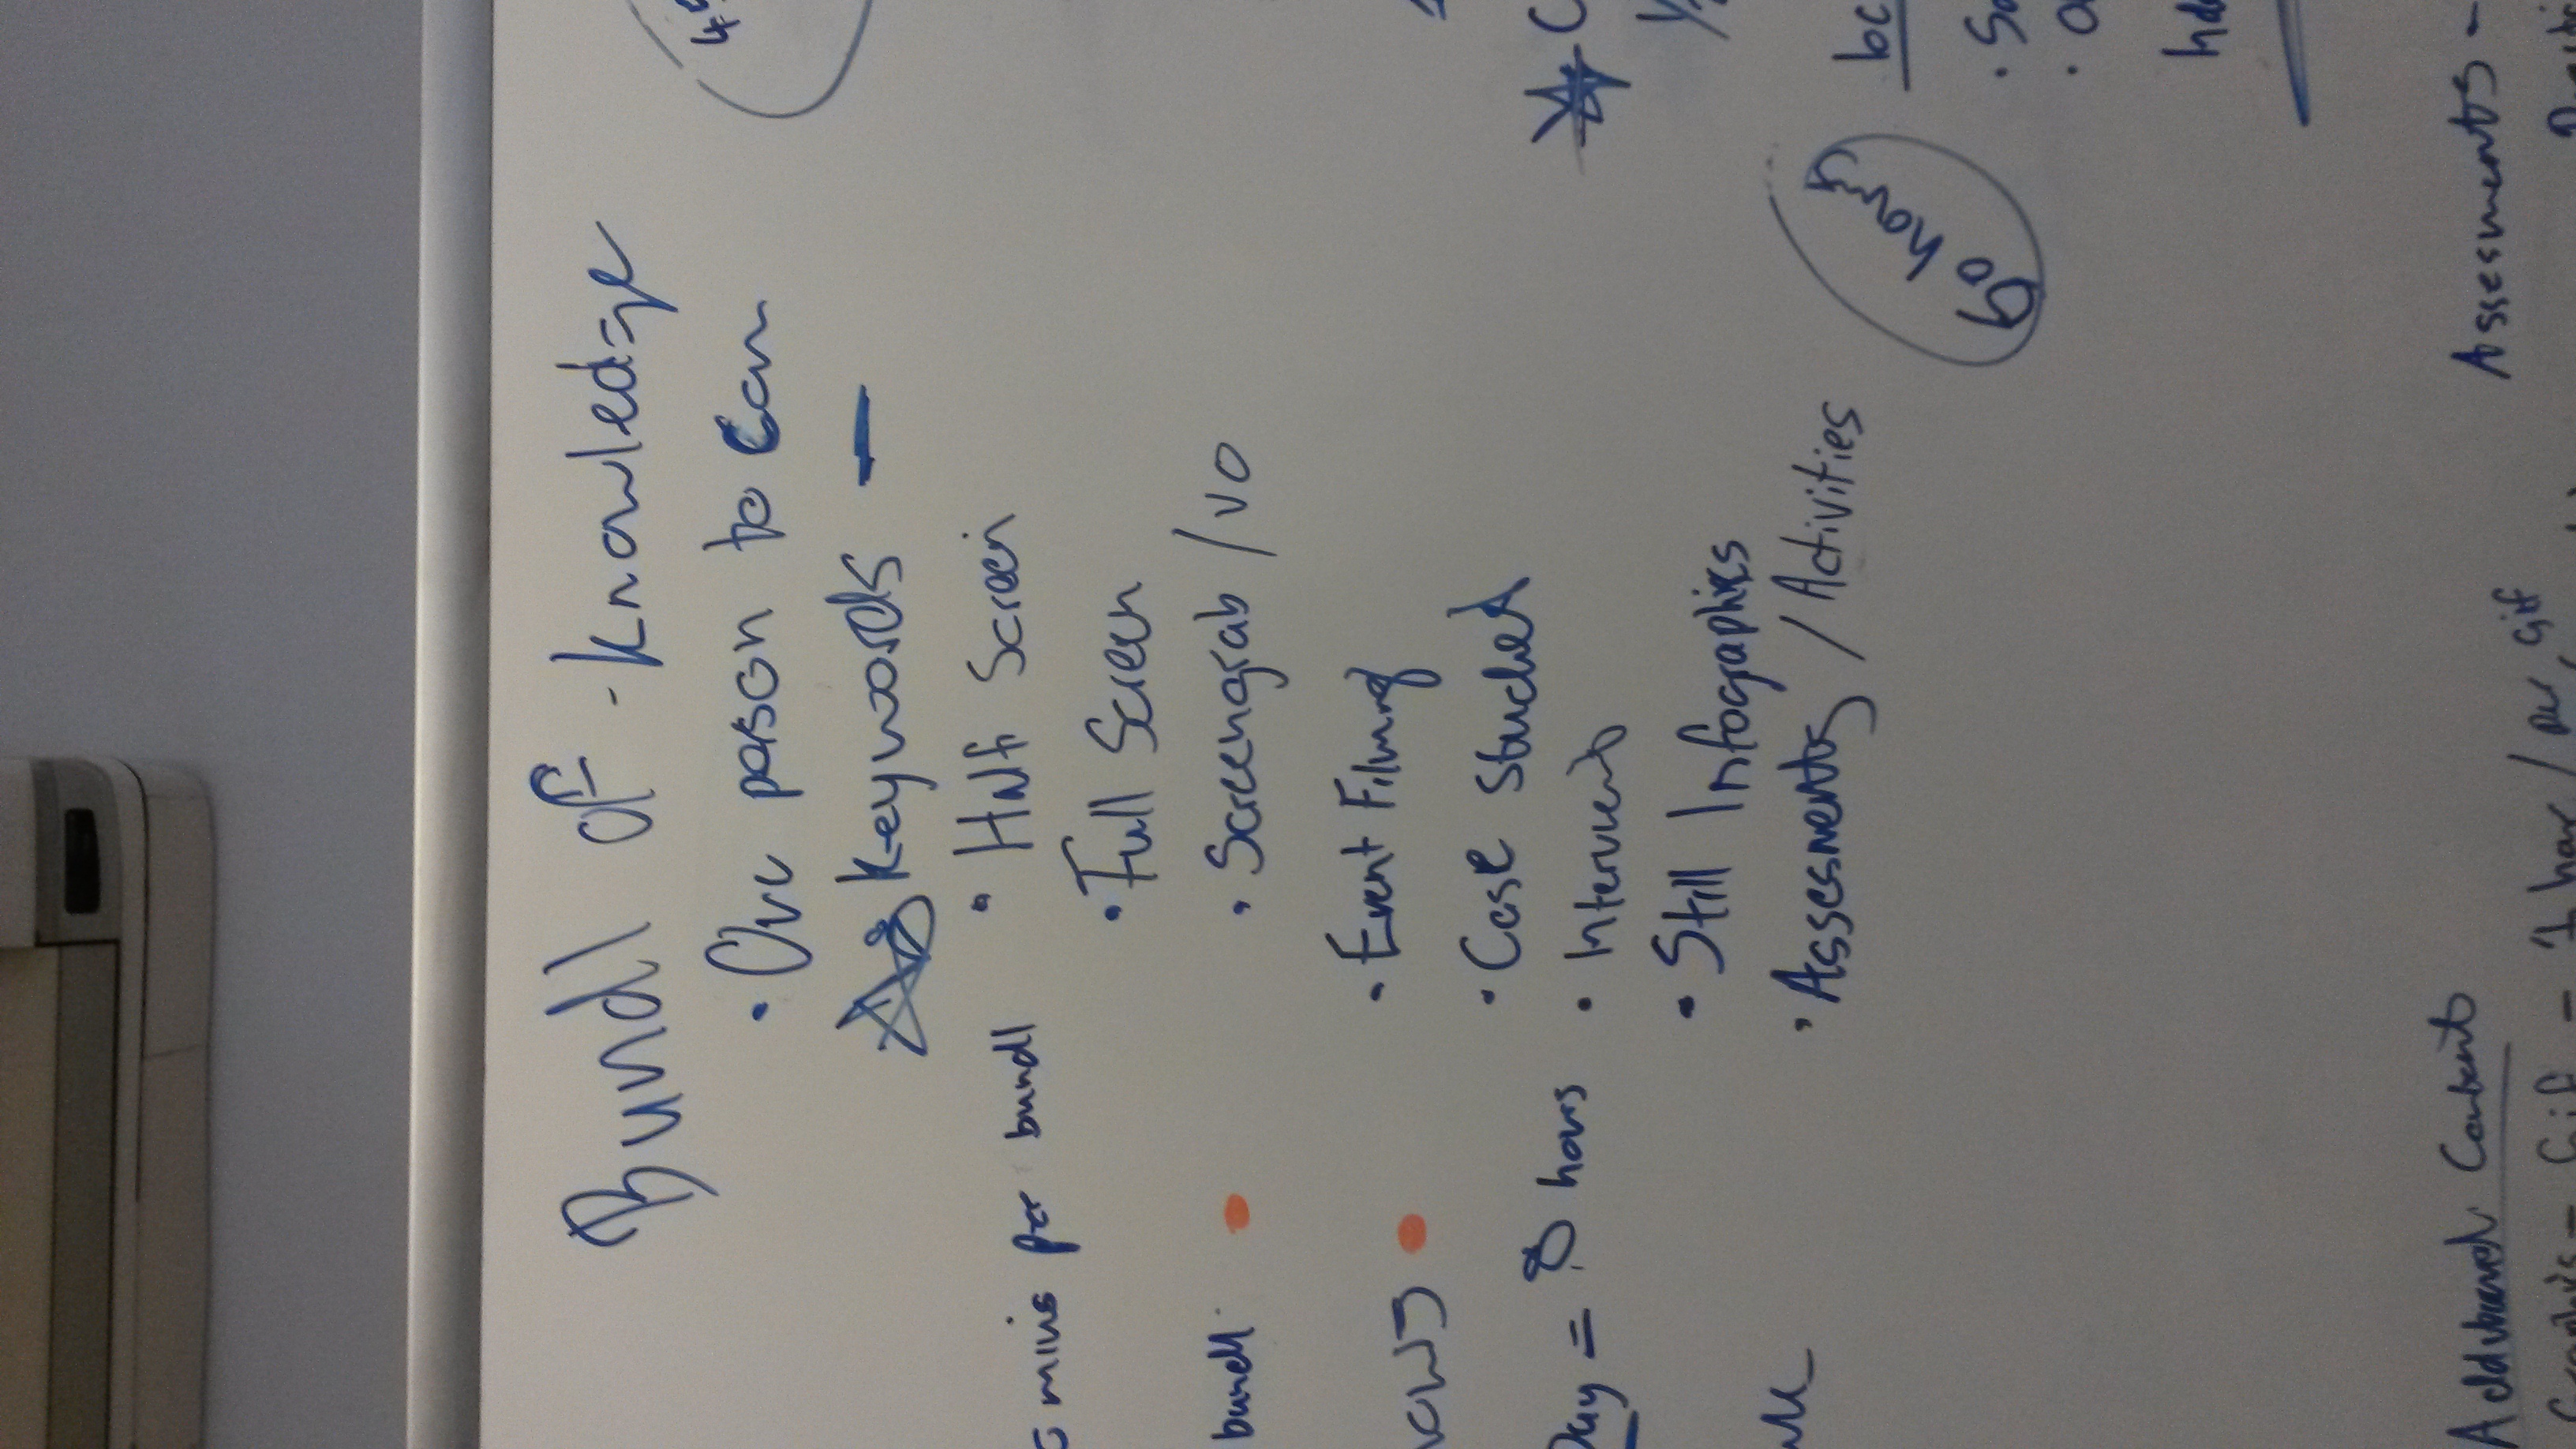 Bundl of knowledge
• One person to Cam
Keywords –
• Half Screen
• Full Screen
• Screengrab / VO
• Event Filming
• Case Studies
• Interviews
• Still Infographics
• Assesments / Activities
mins per bundl
bundl
Day = 8 hours
hours
Additional Content
Graphics – Gif – 1 hour / per Gif
Assesments –